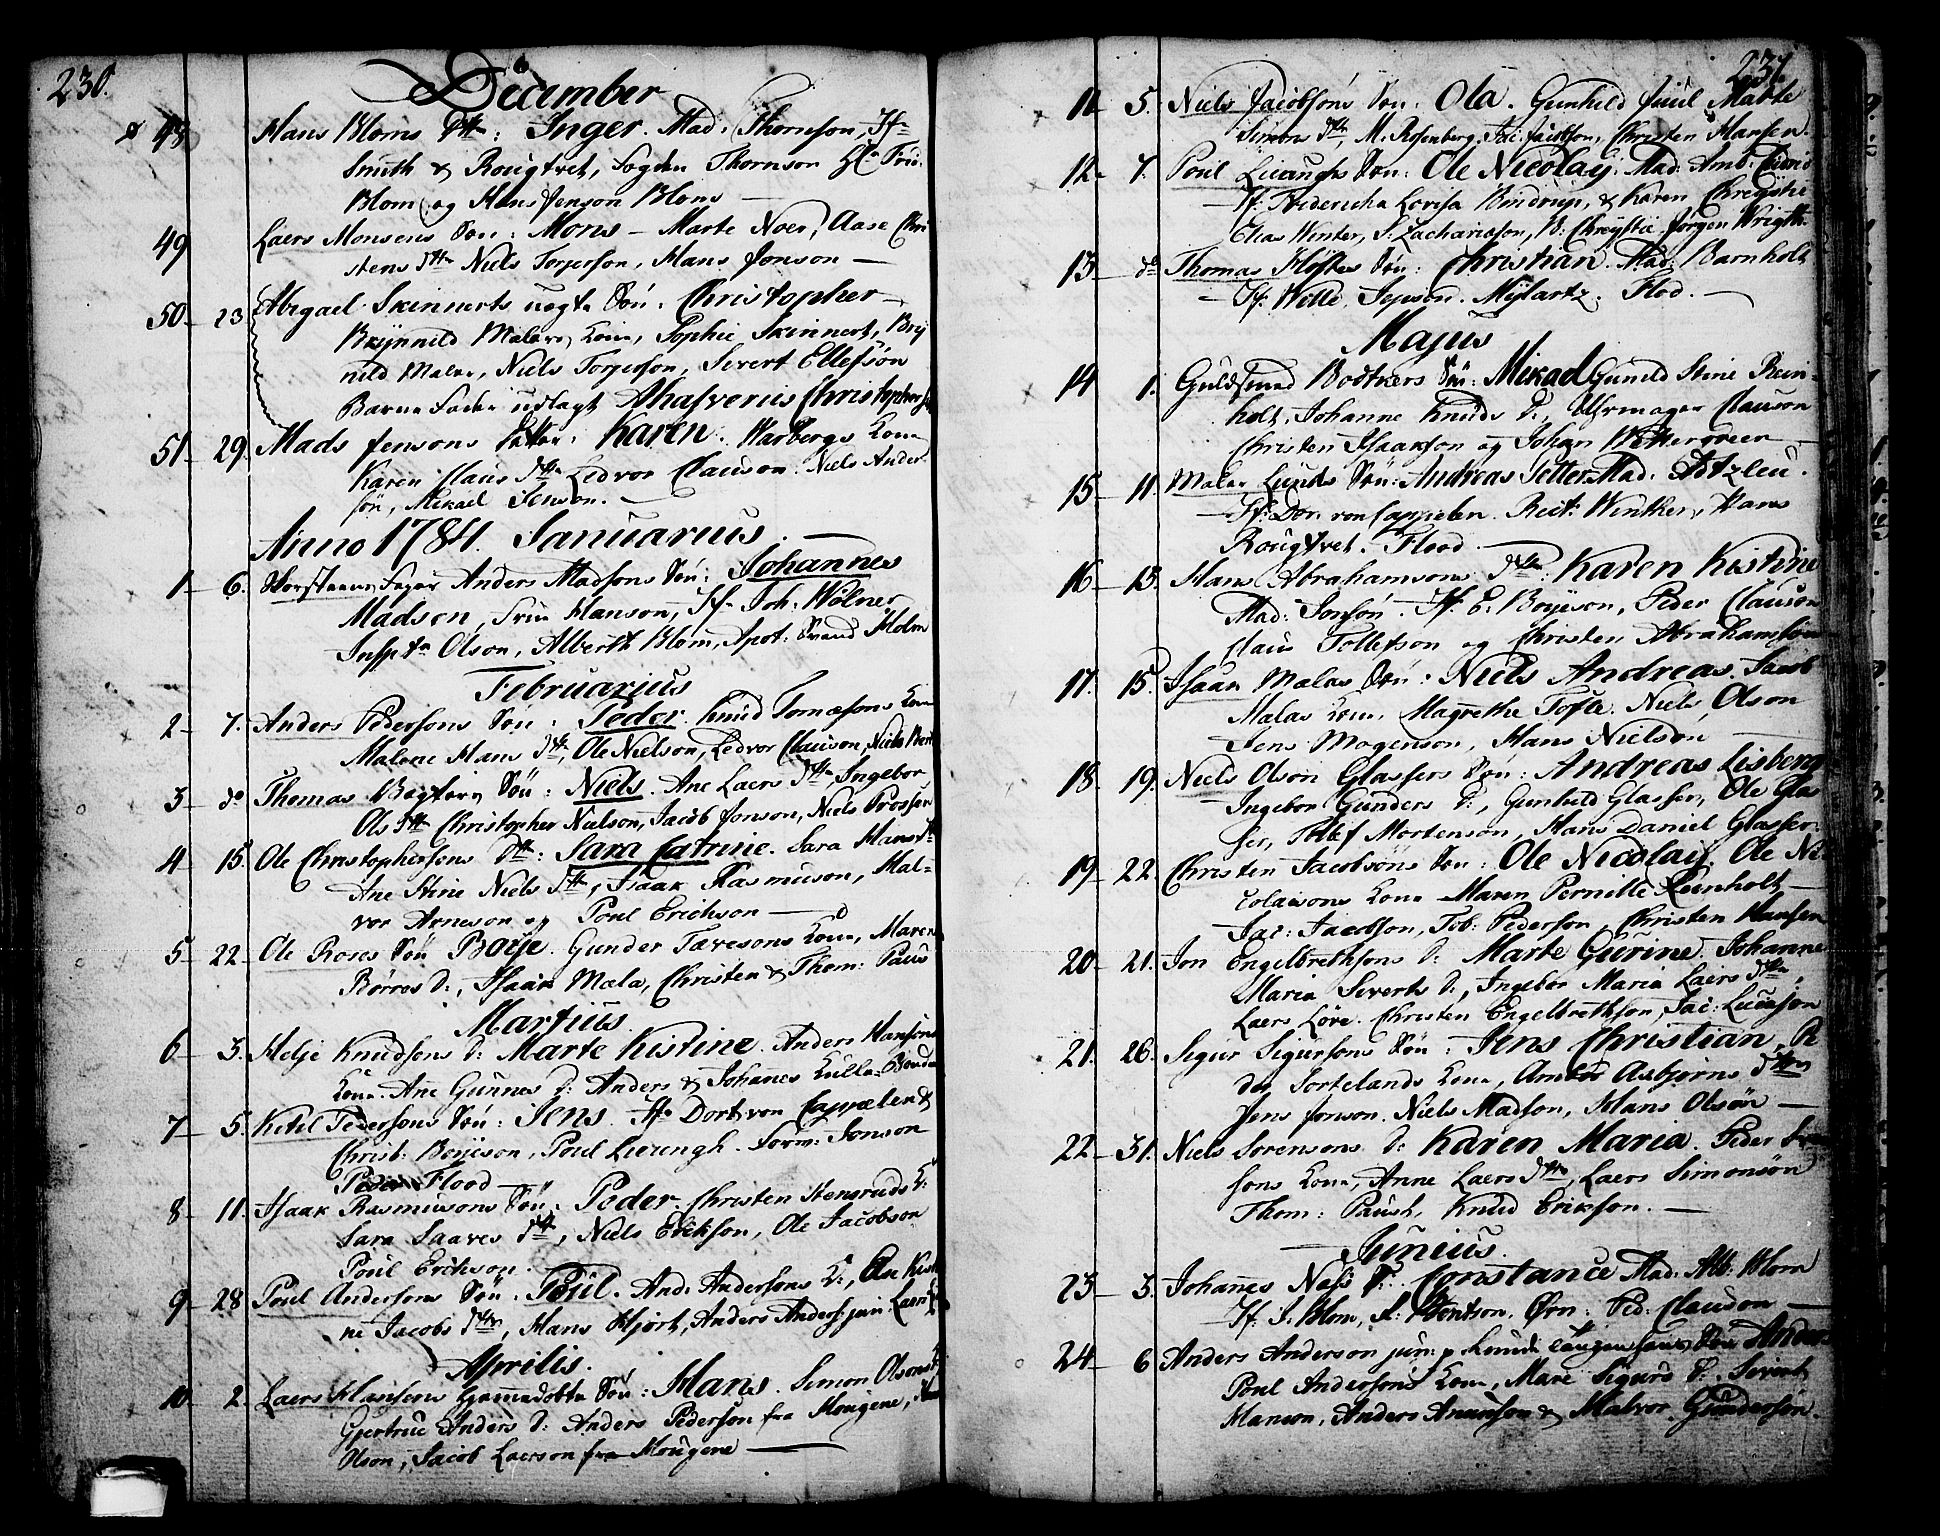 230.
December
48 Hans Bloms Dtr: Inger. Mad: Thomson, Jf
Smith & Rougtvet, Fogden Thomson Hr Frid:
Blom og Hans Jenson Blom
49 Laers Monsens Søn: Mons - Marte Noer, Aase Chri
stens Dtr Niels Torjerson, Hans Jonson
50 23 Abigael Skinnerts uegte Søn: Christopher
Brynnild Malers Kone, Sophie Skinnert, Bry
nild Maler, Niels Torjerson, Severt Ellefsön
Barne Fader udlagt Ahasverius Christophers
51 29 Mads Jensons Datter: Karen. Warbergs Kone
Karen Claus Dtr Ledvor Clauson. Niels Ander
sön, Mikael Jenson.
Anno 1784. Januarius
1 6. Anders Madsons Søn: Johannes
Madson, Hanson, Jf Joh: Wölner
Insptr Olson, Alberth Blom, Apot: Holm
Februarius
2 7. Anders Pedersons Søn: Peder. Knud Tomæsons Kone
Malene Hans Dtr, Ole Nielson, Ledvor Clauson, Niels
3 do Thomas Søn: Niels. Ane Laers Dtr Ingebor
Ols Dtr Christopher Nielson, Jacob Jonson, Niels
4 15. Ole Christophersons Dtr: Sara Catrine. Sara Hans Dtr
Ane Stine Niels Dtr, Isaak Rasmuson, Hal-
vor Arneson og Poul Erichson
5 22 Ole Roses Søn Börje. Gunder Tæresons Kone, Maren
Börres D:, Isaak Mæla, Christen & Thom: Paus
Martius.
6 3. Helje Knudsons D: Marte Kistine. Anders Hansöns
Kone. Ane Gunnes D: Anders & Johanes
7 5. Ketel Pedersons Søn: Jens. Jfr Dort von Cappelen &
Christ: Böyeson, Poul Liewngh. Jonson
Peder Flood
8 11. Isaak Rasmusons Søn: Peder. Christen Stensruds K:
Sara Saares Dtr, Niels Erikson, Ole Jacobson
Poul Erichson.
9 28 Poul Andersons Søn. Poul. And: Andersons K:, Ane Kisti
ne Jacobs Dtr, Hans Hjort, Anders Anders: jun Laers
Aprilis.
10. 2. Laers Hansens Søn: Hans. Simon Olsons
Gjertrue Anders D: Anders Pederson fra Mougene,
Olson, Jacob Laerson fra Mougene
231.
11 5. Niels Jacobsöns Søn: Ola. Gunhild Juul Marte
Simons Dtr, M: Rosenberg, Jac: Jacobson, Christen Hansen.
12 7. Poul Liewnghs Søn: Ole Nicolay. Mad: Amb:
Jf. Fridericha Lovisa Bindrup, & Karen Chrejstie
Elias Winter, S: Zachariason, B: Chrejstie. Jörgen Wrigth
13 do Thomas Søn: Christian. Mad: Barnholt
Jf: Wille, Jepson. Flod.
Majus
14 1. Guldsmed Bodtkers Søn: Mikael Gunild Stine Rein-
holt, Johanne Knuds D:, Uhrmager Clauson
Christen Isaakson og Johan
15 11. Maler Lunds Søn: Andreas Petter Mad:
Jf: Dor: von Cappelen. Winther, Hans
Rougtvet. Flood
16 13. Hans Abrahamsons Dtr: Karen Kistine
Mad: Jonsön. Jf E: Böyeson, Peder Clauson
Claus Tollefson og Christen Abrahamsön
17 15. Isaak Malas Søn: Niels Andreas. Jacob
Malas Kone, Magrethe Tofte. Niels Olson
Jens Mogenson, Hans Nielson
18 19. Niels Olson Glassers Søn: Andreas Lisberg
Ingebor Gunders D:, Gunhild Glasser, Ole Glas
ser, Tollef Mortenson, Hans Daniel Glasser.
19 22. Christen Jacobsöns Søn: Ole Nicolay. Ole Ni
colaisons Kone Maren Pernille Reinholt
Jac: Jacobson, Tob: Pederson Christen Hansen
20 21. Jon Engelbrethsons D: Marte Gurine. Johanne
Maria Severts D:, Ingebor Maria Laers Dtr,
Laers Löve. Christen Engelbrethson, Jac: Lucason
21. 26. Sigur Sigursons Søn: Jens Christian. Pe
der Sortelands Kone, Asbjörns Dtr
Jens Jonson. Niels Madson, Hans Olsön
22 31. Niels Sörensons D: Karen Maria. Peder
sons Kone, Anne Laers Dtr, Laers Simonsön
Thom: Paush, Knud Erikson.
Junius.
23 3. Johanes Næss D: Constance Mad: Alb: Blom
Jf: J: Blom, Bentson. Örn: Ped: Clauson
24 6 Anders Anderson jun: Søn Anders
Poul Andersons Kone, Mare Sigurs D: Severt
Hanson, Anders & Halvor Gundersön.